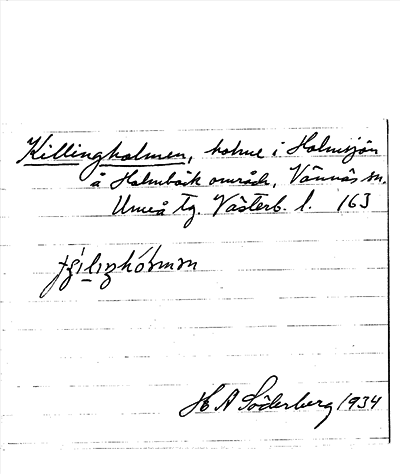 Killingholmen, holme i Holmsjön
å Holmbäck område, Vännäs sn.
Umeå tg. Västerb. l. 163
H A Söderberg 1934